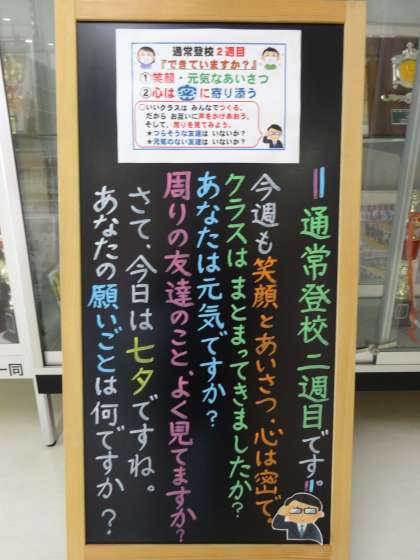 通常登校2週目
『できていますか？』
①笑顔・元気なあいさつ
②心は密に寄り添う
○いいクラスは みんなでつくる。
だから お互いに声をかけあおう。
そして、周りを見てみよう。
★つらそうな友達は いないか？
★元気のない友達は いないか？
通常登校二週目です。
今週も笑顔とあいさつ、心は密で。
クラスはまとまってきましたか？
あなたは元気ですか？
周りの友達のこと、よく見てますか？
さて、今日は七夕ですね。
あなたの願いごとは何ですか？
一同